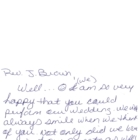 Rev. J. Brown
(We)
Well... I am so very
happy that you could
perform our wedding. We
always smile when we think
of you not only did we